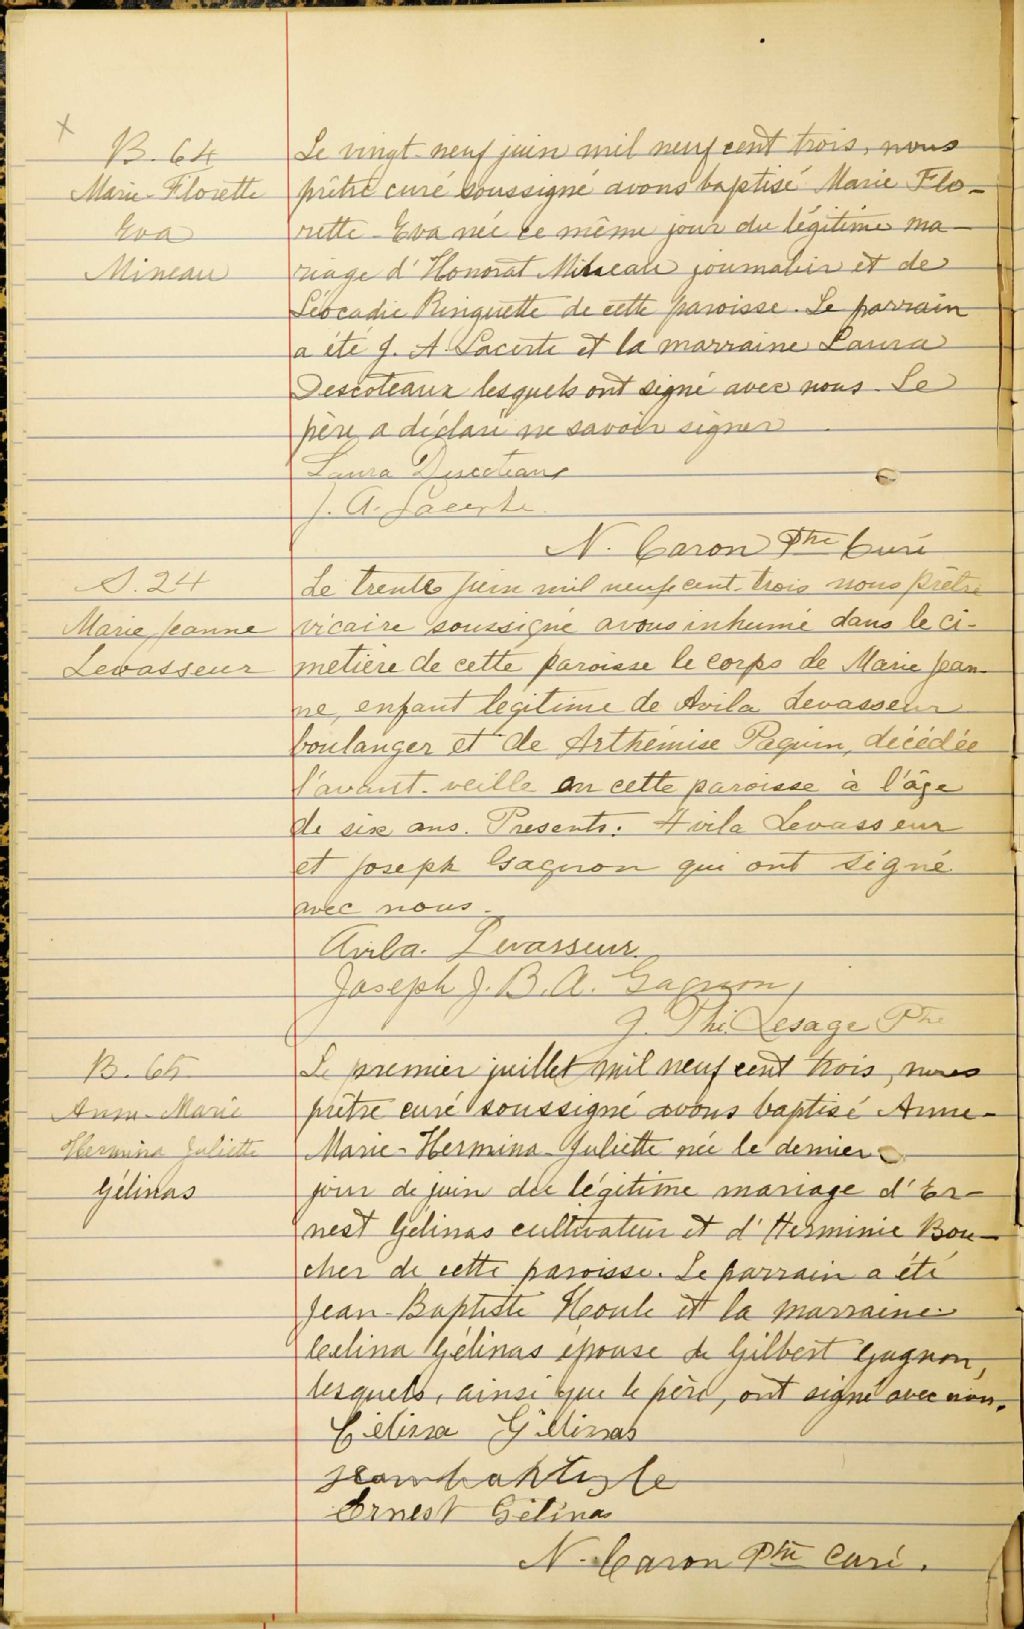 B. 64
Marie-Florette
Eva
Mineau
Le vingt-neuf juin mil neuf cent trois, nous
prêtre curé soussigné avons baptisé Marie Flo-
rette-Eva née ce même jour du légitime ma-
riage d'Honorat Mineau journalier et de
Léocadie Ringuette de cette paroisse. Le parrain
a été J. A. Lacerte et la marraine Laura
Descoteaux lesquels ont signé avec nous. Le
père a déclaré ne savoir signer.
Laura Descoteaux
J. A. Lacerte
N. Caron Ptre Curé
S. 24
Marie Jeanne
Levasseur
Le trente juin mil neuf cent-trois nous prêtre
vicaire soussigné avons inhumé dans le ci-
metière de cette paroisse le corps de Marie Jean-
ne, enfant légitime de Avila Levasseur
boulanger et de Arthémise Paquin, décédée
l'avant-veille en cette paroisse à l'âge
de six ans. Presents: Avila Levasseur
et Joseph Gagnon qui ont signé
avec nous.
Avila. Levasseur.
Joseph J. B. A. Gagnon,
J. Thi. Lesage Ptre
B. 65
Anne-Marie
Hermina Juliette
Gélinas
Le premier juillet mil neuf cent trois, nous
prêtre curé soussigné avons baptisé Anne-
Marie-Hermina-Juliette née le dernier
jour de juin du légitime mariage d'Er-
nest Gélinas cultivateur et d'Herminie Bou-
cher de cette paroisse. Le parrain a été
Jean-Baptiste Houle et la marraine
Celina Gélinas épouse de Gilbert Gagnon,
lesquels, ainsi que le père, ont signé avec nous.
Célina Gélinas
Ernest Gélinas
N. Caron Ptre Curé.